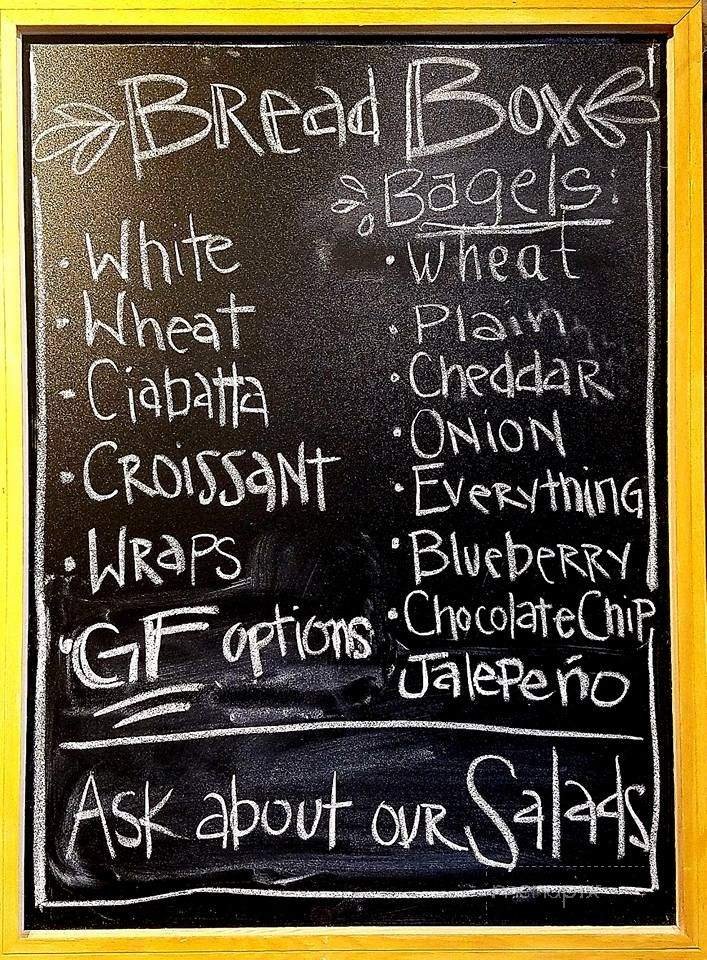 Bread Box
· White
· Wheat
· Ciabatta
· Croissant
· Wraps
· GF options
Bagels:
· Wheat
· Plain
· Cheddar
· Onion
· Everything
· Blueberry
· Chocolate Chip
Jalepeño
Ask about our Salads